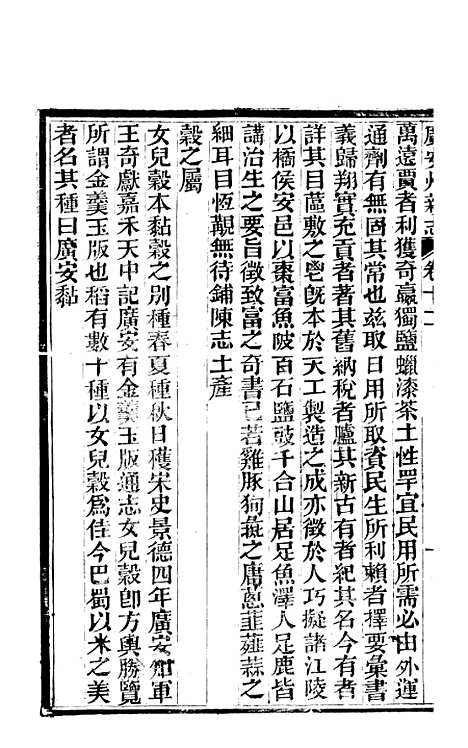 廣安州新志 卷十二
萬遠賈者利獲奇贏獨鹽蠟漆茶土性罕宜民用所需必由外運
通劑有無固其常也兹取日用所取資民生所利賴者擇要彙書
義歸翔實充貢者著其舊納稅者臚其新古有者紀其名今有者
詳其目蓝敷之鬯旣本於天工製造之成亦徵於人巧擬諸江陵
以橘侯安邑以棗富魚陂百石鹽豉千合山居足魚澤人足鹿皆
講治生之要旨徵致富之奇書已若雞豚狗彘之庸蔥韭薤蒜之
細耳目恆覯無待鋪陳志土產
穀之屬
女兒穀本黏穀之別種春夏種秋日穫宋史景德四年廣安軍
王奇獻嘉禾天中記廣安有金羹玉版通志女兒穀卽方輿勝覽
所謂金羹玉版也稻有數十種以女兒穀爲佳今巴蜀以米之美
者名其種曰廣安黏